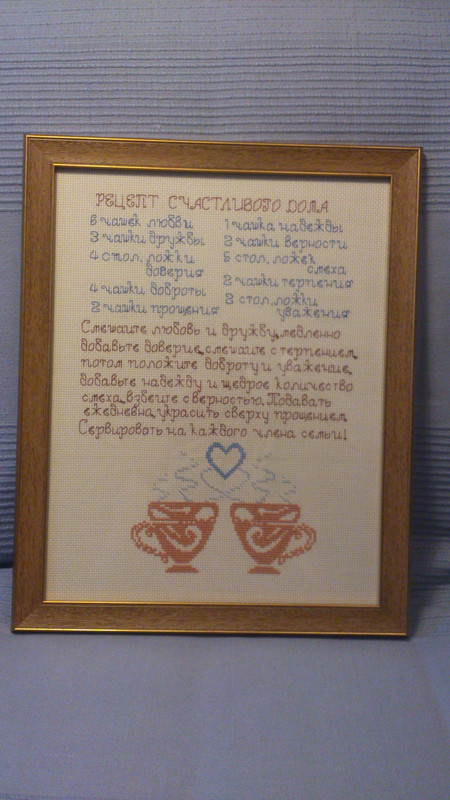 РЕЦЕПТ СЧАСТЛИВОГО ДОМА
6 чашек любви
3 чашки дружбы
4 стол. ложки
доверия
4 чашки доброты
2 чашки прощения
1 чашка надежды
2 чашки верности
5 стол. ложек
смеха
2 чашки терпения
3 стол. ложки
уважения
Смешайте любовь и дружбу, медленно
добавьте доверие, смешайте с терпением,
потом положите доброту и уважение,
добавьте надежду и щедрое количество
смеха, взбейте с верностью. Подавать
ежедневно, украсить сверху прощением.
Сервировать на каждого члена семьи!